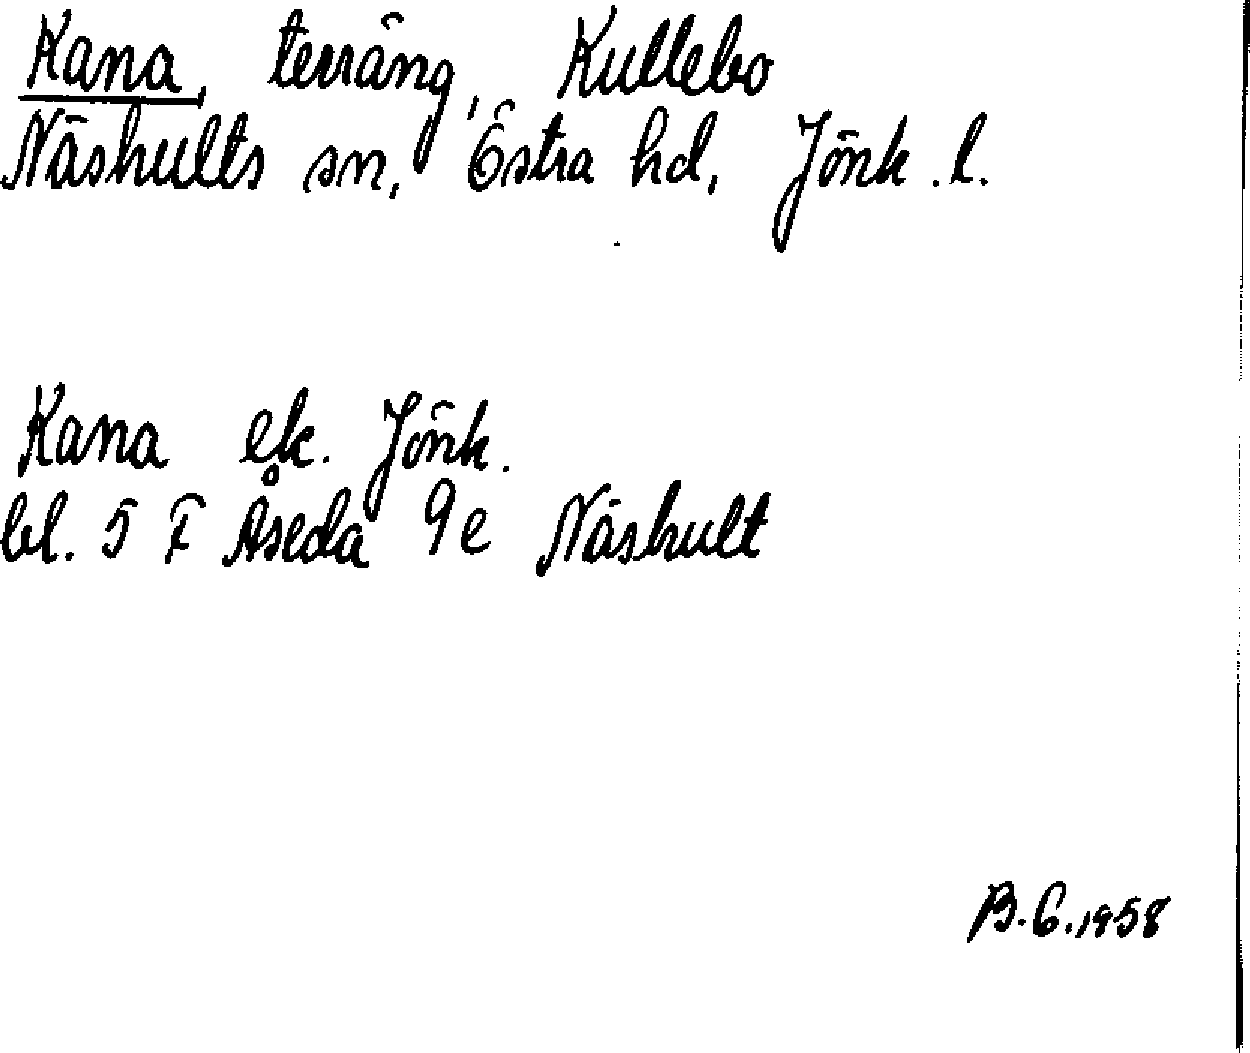 Kana, terräng, Kullebo
Näshults sn, Östra hd, Jönk. l.
Kana ek. Jönk.
bl. 5 F Åseda 9e Näshult
B.G.1958